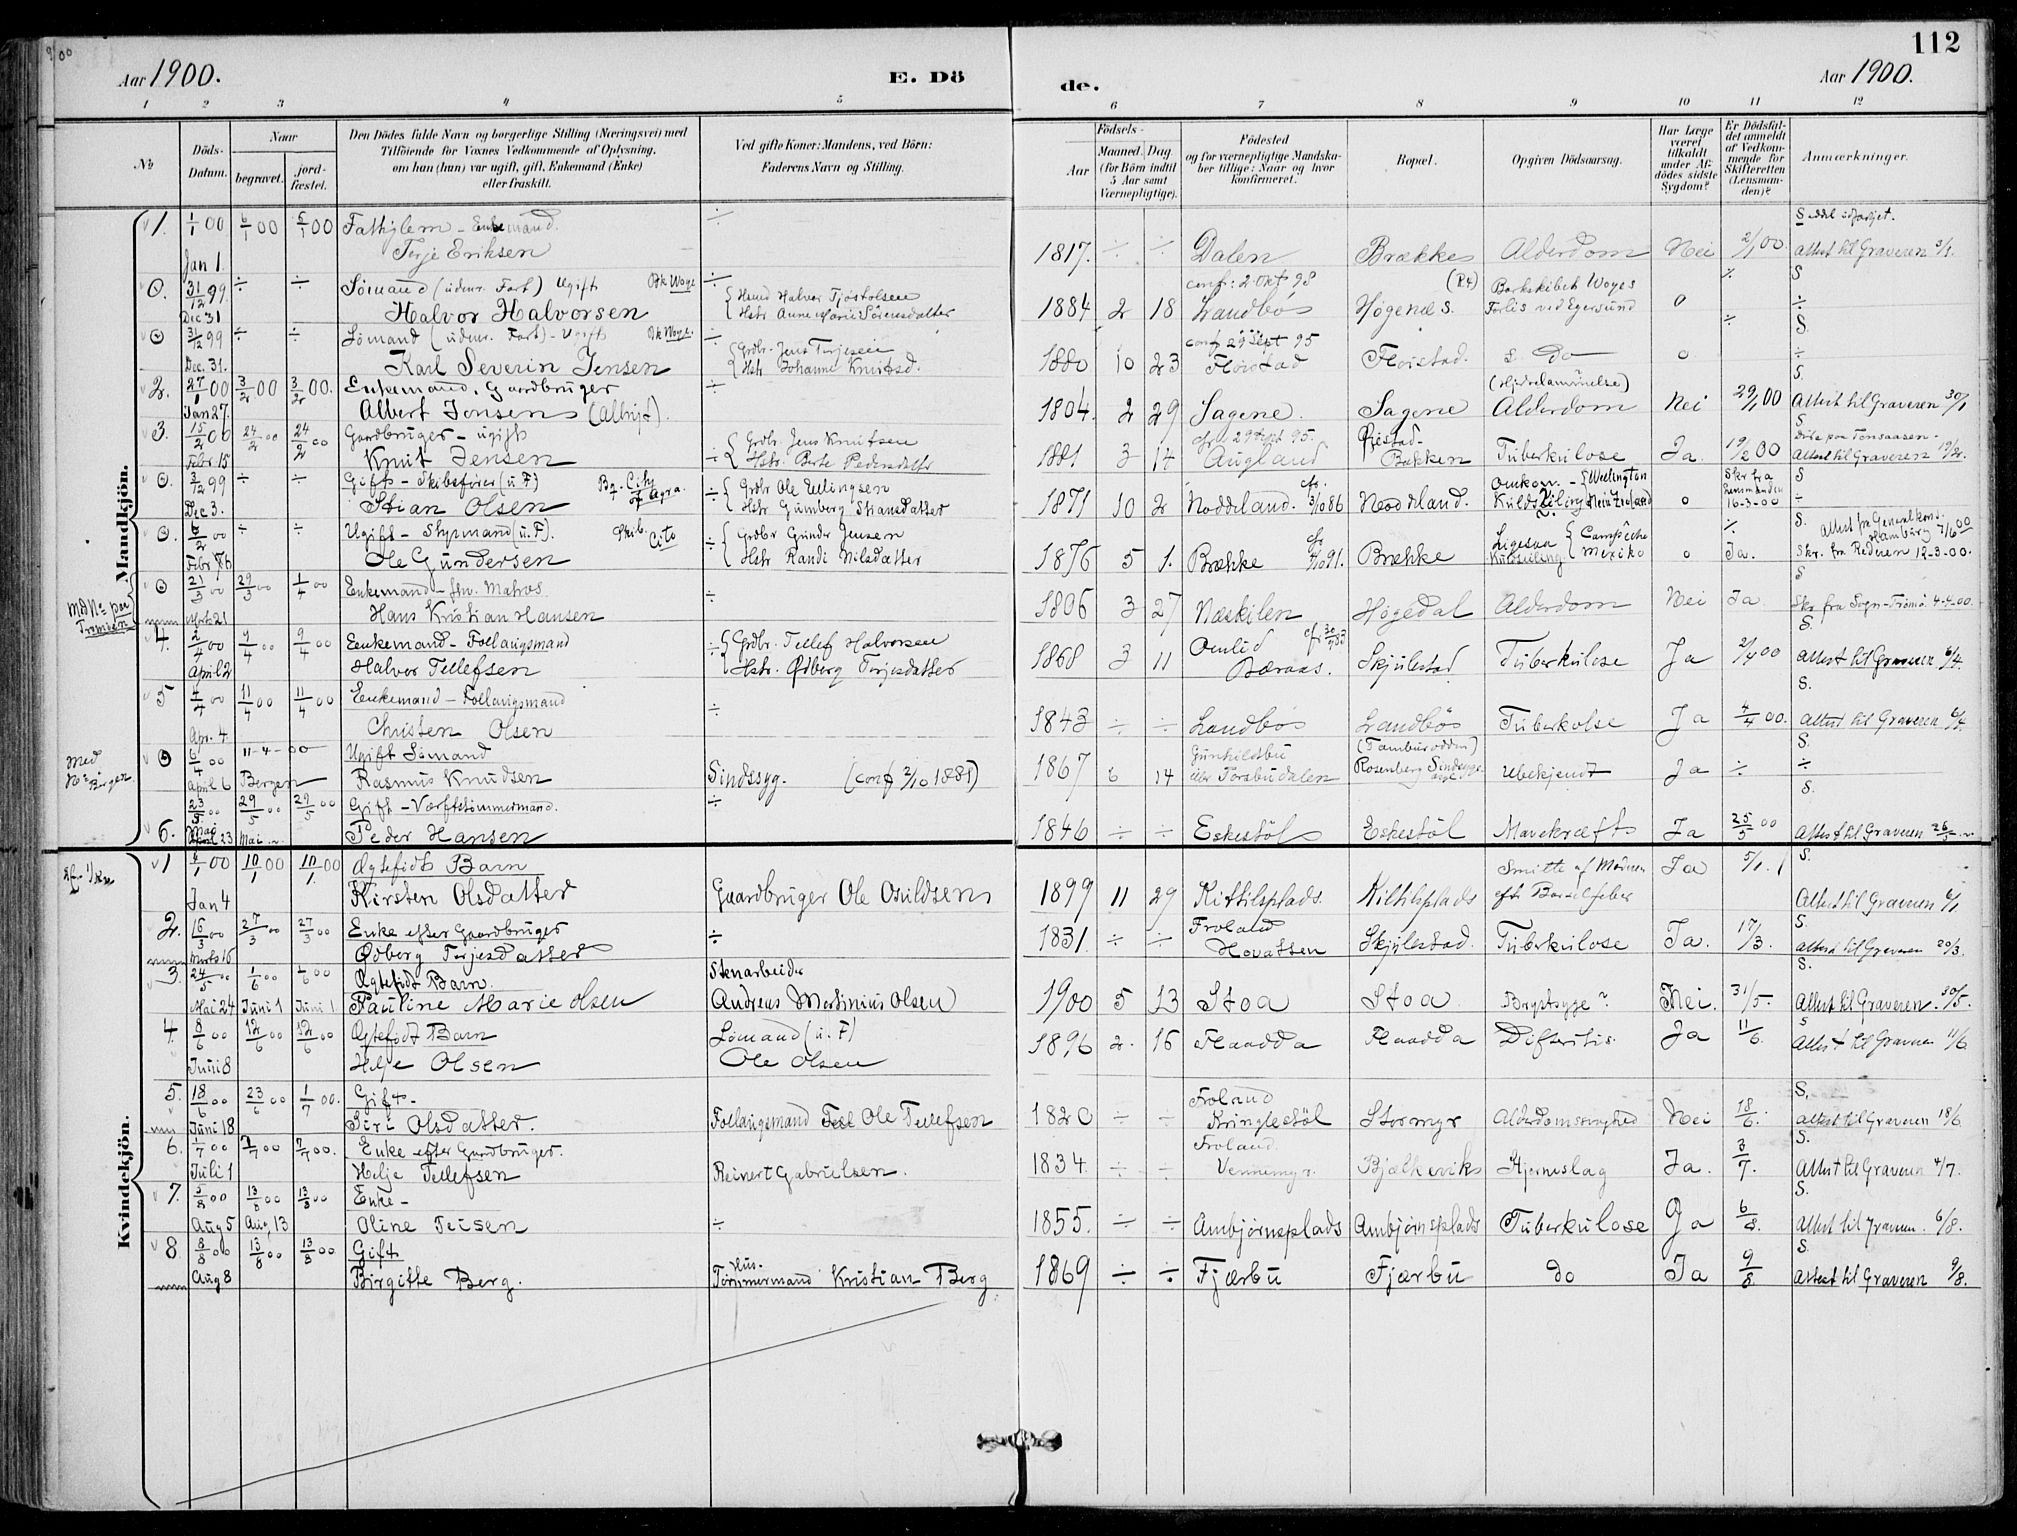 9/00
Aar 1900.
E. Dö
de.
Aar 1900.
112
1 2 3 4 5 6 7 8 9 10 11 12
№
Döds-Datum.
Naar
begravet.
jord-fæstet.
Den Dödes fulde Navn og borgerlige Stilling (Næringsvei) med Tilföiende for Voxnes Vedkommende af Oplysning, om han (hun) var ugift, gift, Enkemand (Enke) eller fraskilt.
Ved gifte Koner: Mandens, ved Börn: Faderens Navn og Stilling.
Födsels-
Aar
Maaned. Dag
(for Börn indtil 5 Aar samt Værnepligtige).
Födested og for værnepligtige Mandskaber tillige: Naar og hvor konfirmeret.
Bopæl.
Opgiven Dödsaarsag.
Har Læge været tilkaldt under Afdödes sidste Sygdom?
Er Dödsfaldet anmeldt af Vedkommende for Skifteretten (Lensmanden)?
Anmærkninger.
Mandkjön.
1. 1/1 00 6/1 00 5/1 00 Fatkjlem - Enkemand. ÷
Jan 1. Terje Eriksen 1817. ÷ ÷ Dalen Brække Alderdom Nei 2/1 00 Attest til Graveren 3/1.
0. 31/12 99 ÷ ÷ Sømand (udenr. Fart) Ugift Bk Woye ÷ confr: 2 Okt 98 (R4) Barkskibet Woyes ÷ S
Dec 31 Halvor Halvorsen { Hmd Halvor Tjøstolsen Hstr Anne Marie Sørensdatter 1884 2 18 Landbös Høgenæs. Forlis ved Egersund 0 ÷
0 31/12 99 ÷ ÷ Sømand (udenr. Fart) - Ugift Bk Woye. ÷ conf 29 Sept 95 ÷ S.
Dec. 31. Karl Severin Jensen { Grdbr. Jens Terjesen Hstr Johanne Knutsd. 1880 10 23 Fløistad Fløistad. Do 0. ÷
2. 27/1 00 3/2 00 3/2 00. Enkemand. Gaardbruger ÷ (Hjertelammelse) S.
Jan 27. Albert Jensen (Albrigt). 1804. 2 29 Sagene. Sagene Alderdom Nei 29/1 00 Attest til Graveren 30/1
3. 15/2 00 24/2 00 24/2 00 Gaardbruger - ugift cfr. 29 Sept 95. Øiestad- S
Febr. 15 Knut Jensen ÷ { Grdbr. Jens Knutsen Hstr. Berte Pedersdatter 1881 3 14 Augland Bakken Tuberkulose Ja. 19/2 00 Døde paa Tonsaasen. Attest til Graveren 19/2.
0. 3/12 99 ÷ ÷ Gift - Skibsfører (u. F) Bg. City of Agra. ÷ { Grdbr Ole Ellingsen Hstr Gumberg Stiansdatter
Dec 3. Stian Olsen 1871 10 2 Noddeland. cfr. 3/10 86 Noddeland. Omkom. - Kuldseiling { Wellington New Zealand 0 Skr fra Lensmanden 16-3-00 S ÷
0. 6/2 00 ÷ ÷ Ugift - Styrmand (u. F). Skib. Cito ÷ { Grdbr Gunder Jensen Hstr Randi Nilsdatter
Febr 6 Ole Gundersen 1876 5 1. Brække cfr 4/10 91. Brække Ligesaa Kuldseiling { Campêche Mexiko 0 ÷ Ja. S. Attest fra Generalkons. Hamburg 7/6 00 Skr. fra Rederen 12-3-00.
Md № paa Tromøen
0 21/3 00 29/3 00 1/4 00 Enkemand - fhv. Matros ÷ S
Marts 21 Hans Kristian Hansen 1806 3 27 Næskilen Høgedal Alderdom Nei Ja Skr fra Sogn-Tromø. 4-4-00.
4. 2/4 00 9/4 00 9/4 00 Enkemand - Follaugsmand S.
April 2 Halvor Tellefsen ÷ { Grdbr. Tellef Halvorsen Hstr. Ødberg Terjesdatter 1868 3 11 Omlid Bæraas. Skjulestad Tuberkulose Ja 2/4 00 Attest til Graveren 6/4.
5 4/4 00 11/4 00 11/4 00 Enkemand - Follaugsmand ÷ S.
Apr. 4 Christen Olsen 1843 ÷ ÷ Landbös Landbös Tuberkolse Ja 4/4 00. Attest til Graveren 6/4.
Med № i Bergen
0 6/4 00 11-4-00 Ugift Sømand Gunhildsbu (Tamburodden) S.
April 6 Bergen Rasmus Knudsen Sindssyg. (conf 2/10 1881) 1867 6 14 eller Torsbudalen Rosenberg Sindssygeasyl Ubekjendt Ja ÷ ÷
6. 23/5 00 29/5 00 29/5 00 Gift - Værftstømmermand. ÷ S.
Mai 23 Mai Peder Hansen 1846 ÷ ÷ Eskestøl Eskestøl Mavekræft Ja 25/5 00 Attest til Graveren 26/5
Kvindekjön.
1 4/1 00 10/1 00 10/1 00 Ægtefødt Barn Smitte af Moderen Ja 5/1. S.
Jan 4 Kirsten Olsdatter Gaardbruger Ole Osuldsen 1899 11 29 Kittilsplads. Kittilsplads eft Barselfeber Attest til Graveren 6/1
2. 16/3 00 27/3 00 27/3 00 Enke efter Gaardbruger ÷ Froland S.
Marts 16 Ødberg Terjesdatter 1831. ÷ ÷ Hovatten Skjulestad. Tuberkulose Ja. 17/3. Attest til Graveren 20/3.
3. 24/5 00 1/6 00 1/6 00 Ægtefødt Barn. Stenarbeider S.
Mai 24 Juni 1 Juni 1 Pauline Marie Olsen Andreas Martinius Olsen 1900 5 13 Stoa Stoa Brystsyge? Nei. 31/5. Attest til Graveren. 30/5.
4. 8/6 00 12/6 00 12/6 00 Ægtefødt Barn Sømand (u. F) S
Juni 8 Helje Olsen Ole Olsen 1896 2. 16 Flaadda Flaadda Difteritis. Ja 11/6. Attest til Graveren 11/6
5. 18/6 00 23/6 00 1/7 00. Gift- Froland S.
Juni 18 Siri Olsdatter. Follaugsmand Ole Tellefsen 1820 ÷ ÷ Kringlestøl Stormyr Alderdomssvaghed Nei 18/6. Attest til Graveren 18/6
6. 1/7 00 7/7 00 7/7 00. Enke efter Gaardbruger. Froland. S.
Juli 1 Helje Tellefsen Reinert Gabrielsen. 1834. ÷ ÷ Vennemyr. Bjelkeviks Hjerneslag Ja. 3/7. Attest til Graveren 4/7.
7. 5/8 00 13/8 00 13/8 00 Enke- S.
Aug 5 Aug, 13 Oline Teisen ÷ 1855. ÷ ÷ Ambjørnsplads Ambjørnsplads Tuberkulose Ja 6/8. Attest til Graveren. 6/8.
8 8/8 00 13/8 00 13/8 00 Gift Hus- S.
Aug 8 Birgitte Berg. Tømmermand Kristian Berg 1869 ÷ ÷ Fjærbu Fjærbu do Ja 9/8. Attest til Graveren 9/8.